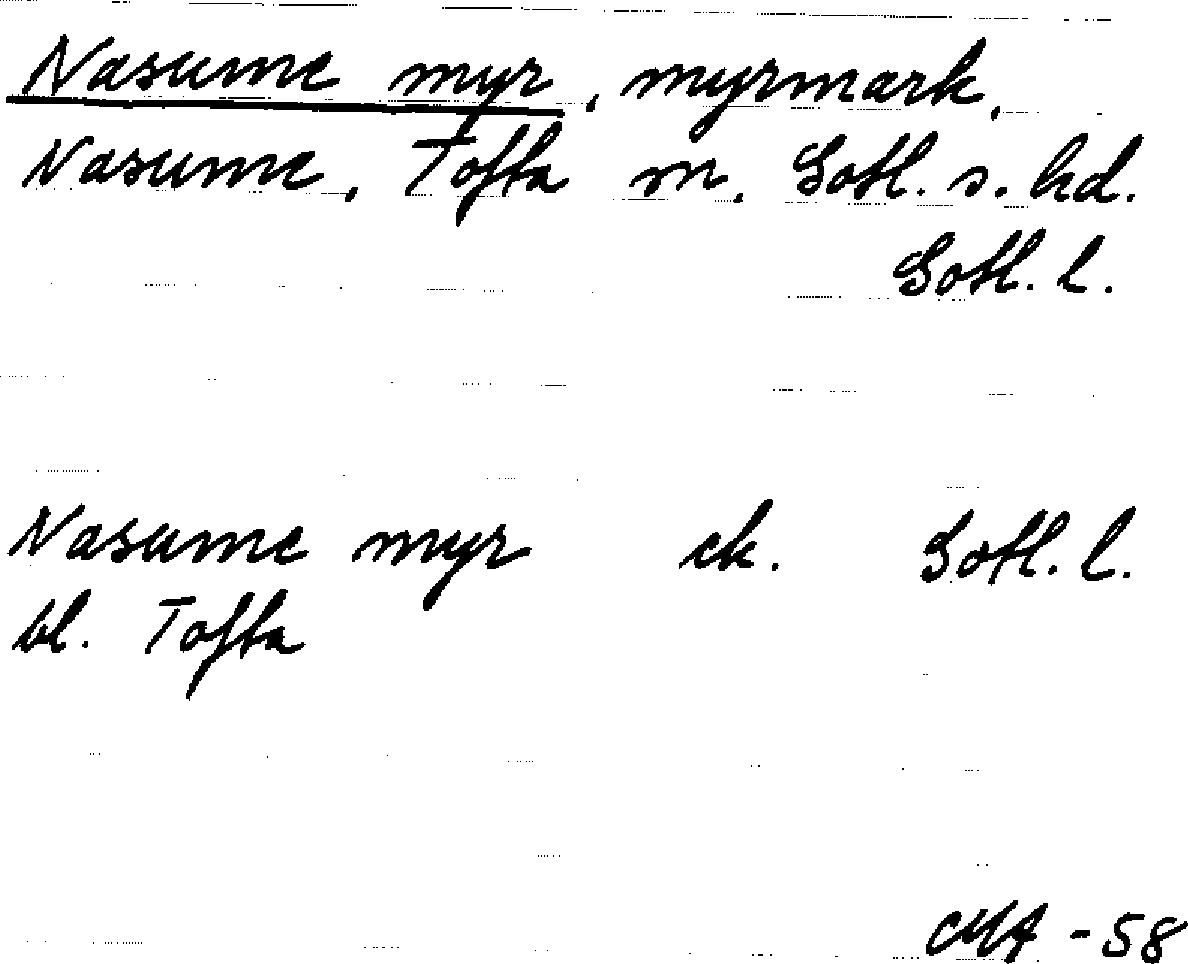 Nasume myr, myrmark,
Nasume, Tofta sn. Gotl. s. hd.
Gotl. l.
Nasume myr ek. Gotl. l.
bl. Tofta
-58